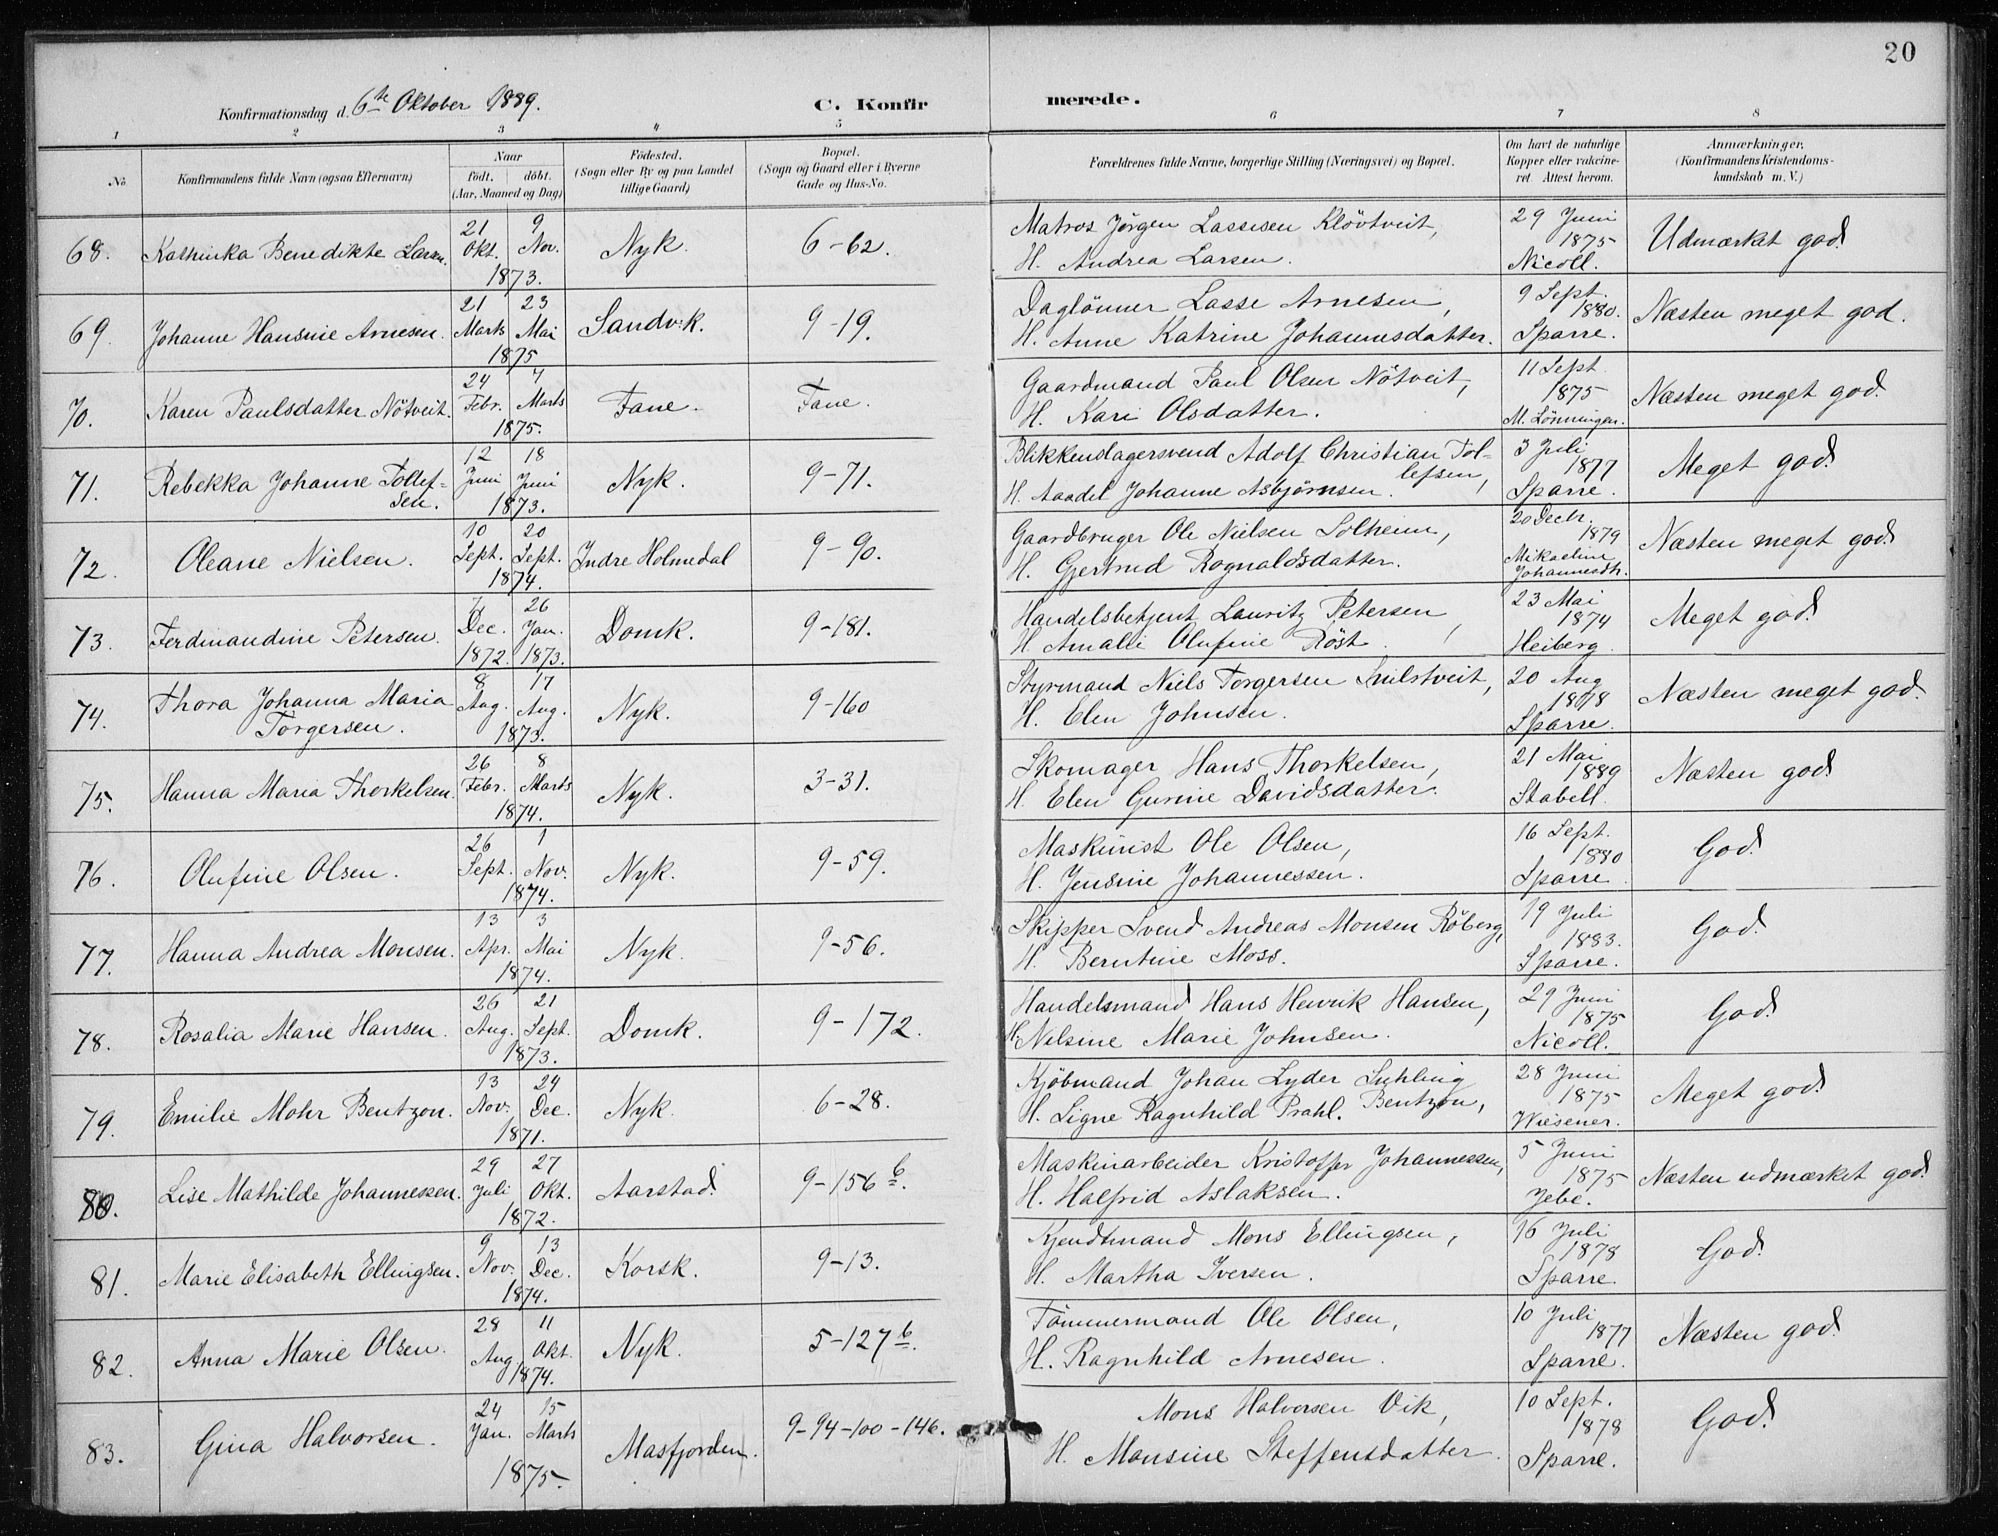 20
Konfirmationsdag d. 6te Oktober 1889.
C. Konfirmerede.
1 2 3 4 5 6 7 8
No
Konfirmandens fulde Navn (ogsaa Efternavn)
Naar
født. døbt.
(Aar, Maaned og Dag)
Fødested.
(Sogn eller By og paa Landet
tillige Gaard)
Bopæl.
(Sogn og Gaard eller i Byerne
Gade og Hus-No.
Forældrenes fulde Navne, borgerlige Stilling (Næringsvei) og Bopæl.
Om havt de naturlige
Kopper eller vakcine-
ret. Attest herom.
Anmærkninger.
(Konfirmandens Kristendoms-
kundskab m. V.)
68. Kathinka Benedikte Larsen. 21 Okt. 9 Nov. 1873. Nyk. 6-62. Matros Jørgen Lassesen Kløvtveit,
H. Andrea Larsen. 29 Juni 1875 Nicoll. Udmærket god.
69. Johanne Hansine Arnesen. 21 Marts 23 Mai 1875 Sandv.k. 9-19. Daglönner Lasse Arnesen,
H. Anne Katrine Johannesdatter. 9 Sept. 1880. Sparre. Næsten meget god.
70. Karen Paulsdatter Nötveit. 24 Febr. 4 Marts 1875. Fane. Fane. Gaardmand Paul Olsen Nötveit,
H. Kari Olsdatter. 11 Sept 1875 M. Lönningen. Næsten meget god.
71. Rebekka Johanne Tollef-
sen. 12 Juni 18 Juni 1873. Nyk. 9-71. Blikkenslagersvend Adolf Christian Tol-
lefsen,
H. Aaadel Johanne Asbjørnsen. 3 Juli 1877 Sparre. Meget god.
72. Oleane Nielsen. 10 Sept. 20 Sept. 1874. Indre Holmedal 9-90. Gaardbruger Ole Nielsen Solheim,
H. Gjertrud Rognaldsdatter. 20 Decbr. 1879 Mikaeline Johannesdtr. Næsten meget god.
73. Ferdinandine Petersen. 7 Dec. 1872. 26 Jan. 1873. Domk. 9-181. Handelsbetjent Lauritz Petersen,
H. Amalie Olufine Röst. 23 Mai 1874 Heiberg. Meget god.
74. Thora Johanna Maria
Torgersen. 8 Aug. 17 Aug. 1873. Nyk. 9-160 Styrmand Niels Torgersen Smilstveit,
H. Elen Johnsen. 20 Aug 1878 Sparre. Næsten meget god.
75. Hanna Maria Thorkelsen. 26 Febr. 8 Marts 1874. Nyk. 3-31. Skomager Hans Thorkelsen,
H. Elen Gurine Davidsdatter. 21 Mai 1889 Stabell. Næsten god.
76. Olufine Olsen. 26 Sept. 1 Nov. 1874. Nyk. 9-59. Maskinist Ole Olsen,
H. Jensine Johannessen. 16 Sept. 1880 Sparre. God.
77. Hanna Andrea Monsen. 13 Apr. 3 Mai 1874. Nyk. 9-56. Skipper Svend Andreas Monsen Röberg,
H. Berntine Moss. 19 Juli 1883. Sparre. God.
78. Rosalia Marie Hansen. 26 Aug. 21 Sept. 1873. Domk. 9-172. Handelsmand Hans Henrik Hansen,
H. Nelsine Marie Johnsen. 29 Juni 1875 Nicoll. God.
79. Emilie Mohr Bentzon. 13 Nov. 24 Dec. 1871. Nyk. 6-28. Kjöbmand Johan Lyder Suhling
Bentzon,
H. Signe Ragnhild Prahl. 28 Juni 1875 Wiesener. Meget god.
80. Lise Mathilde Johannessen. 29 Juli 27 Okt. 1872. Aarstad. 9-156 b. Maskinarbeider Kristoffer Johannessen,
H. Halfrid Aslaksen. 5 Juni 1875 Jebe. Næsten udmærket god.
81. Marie Elisabeth Ellingsen. 9 Nov. 13 Dec. 1874. Korsk. 9-13. Kjendtmand Mons Ellingsen,
H. Martha Iversen. 16 Juli 1878 Sparre. God.
82. Anna Marie Olsen. 28 Aug 11 Okt. 1874. Nyk. 5-127 b. Tömmermand Ole Olsen,
H. Ragnhild Arnesen. 10 Juli 1877 Sparre. Næsten god.
83. Gina Halvorsen. 24 Jan. 15 Marts 1875. Masfjorden. 9-94-100-146. Mons Halvorsen Vik,
H. Monsine Steffensdatter. 10 Sept. 1878 Sparre. God.